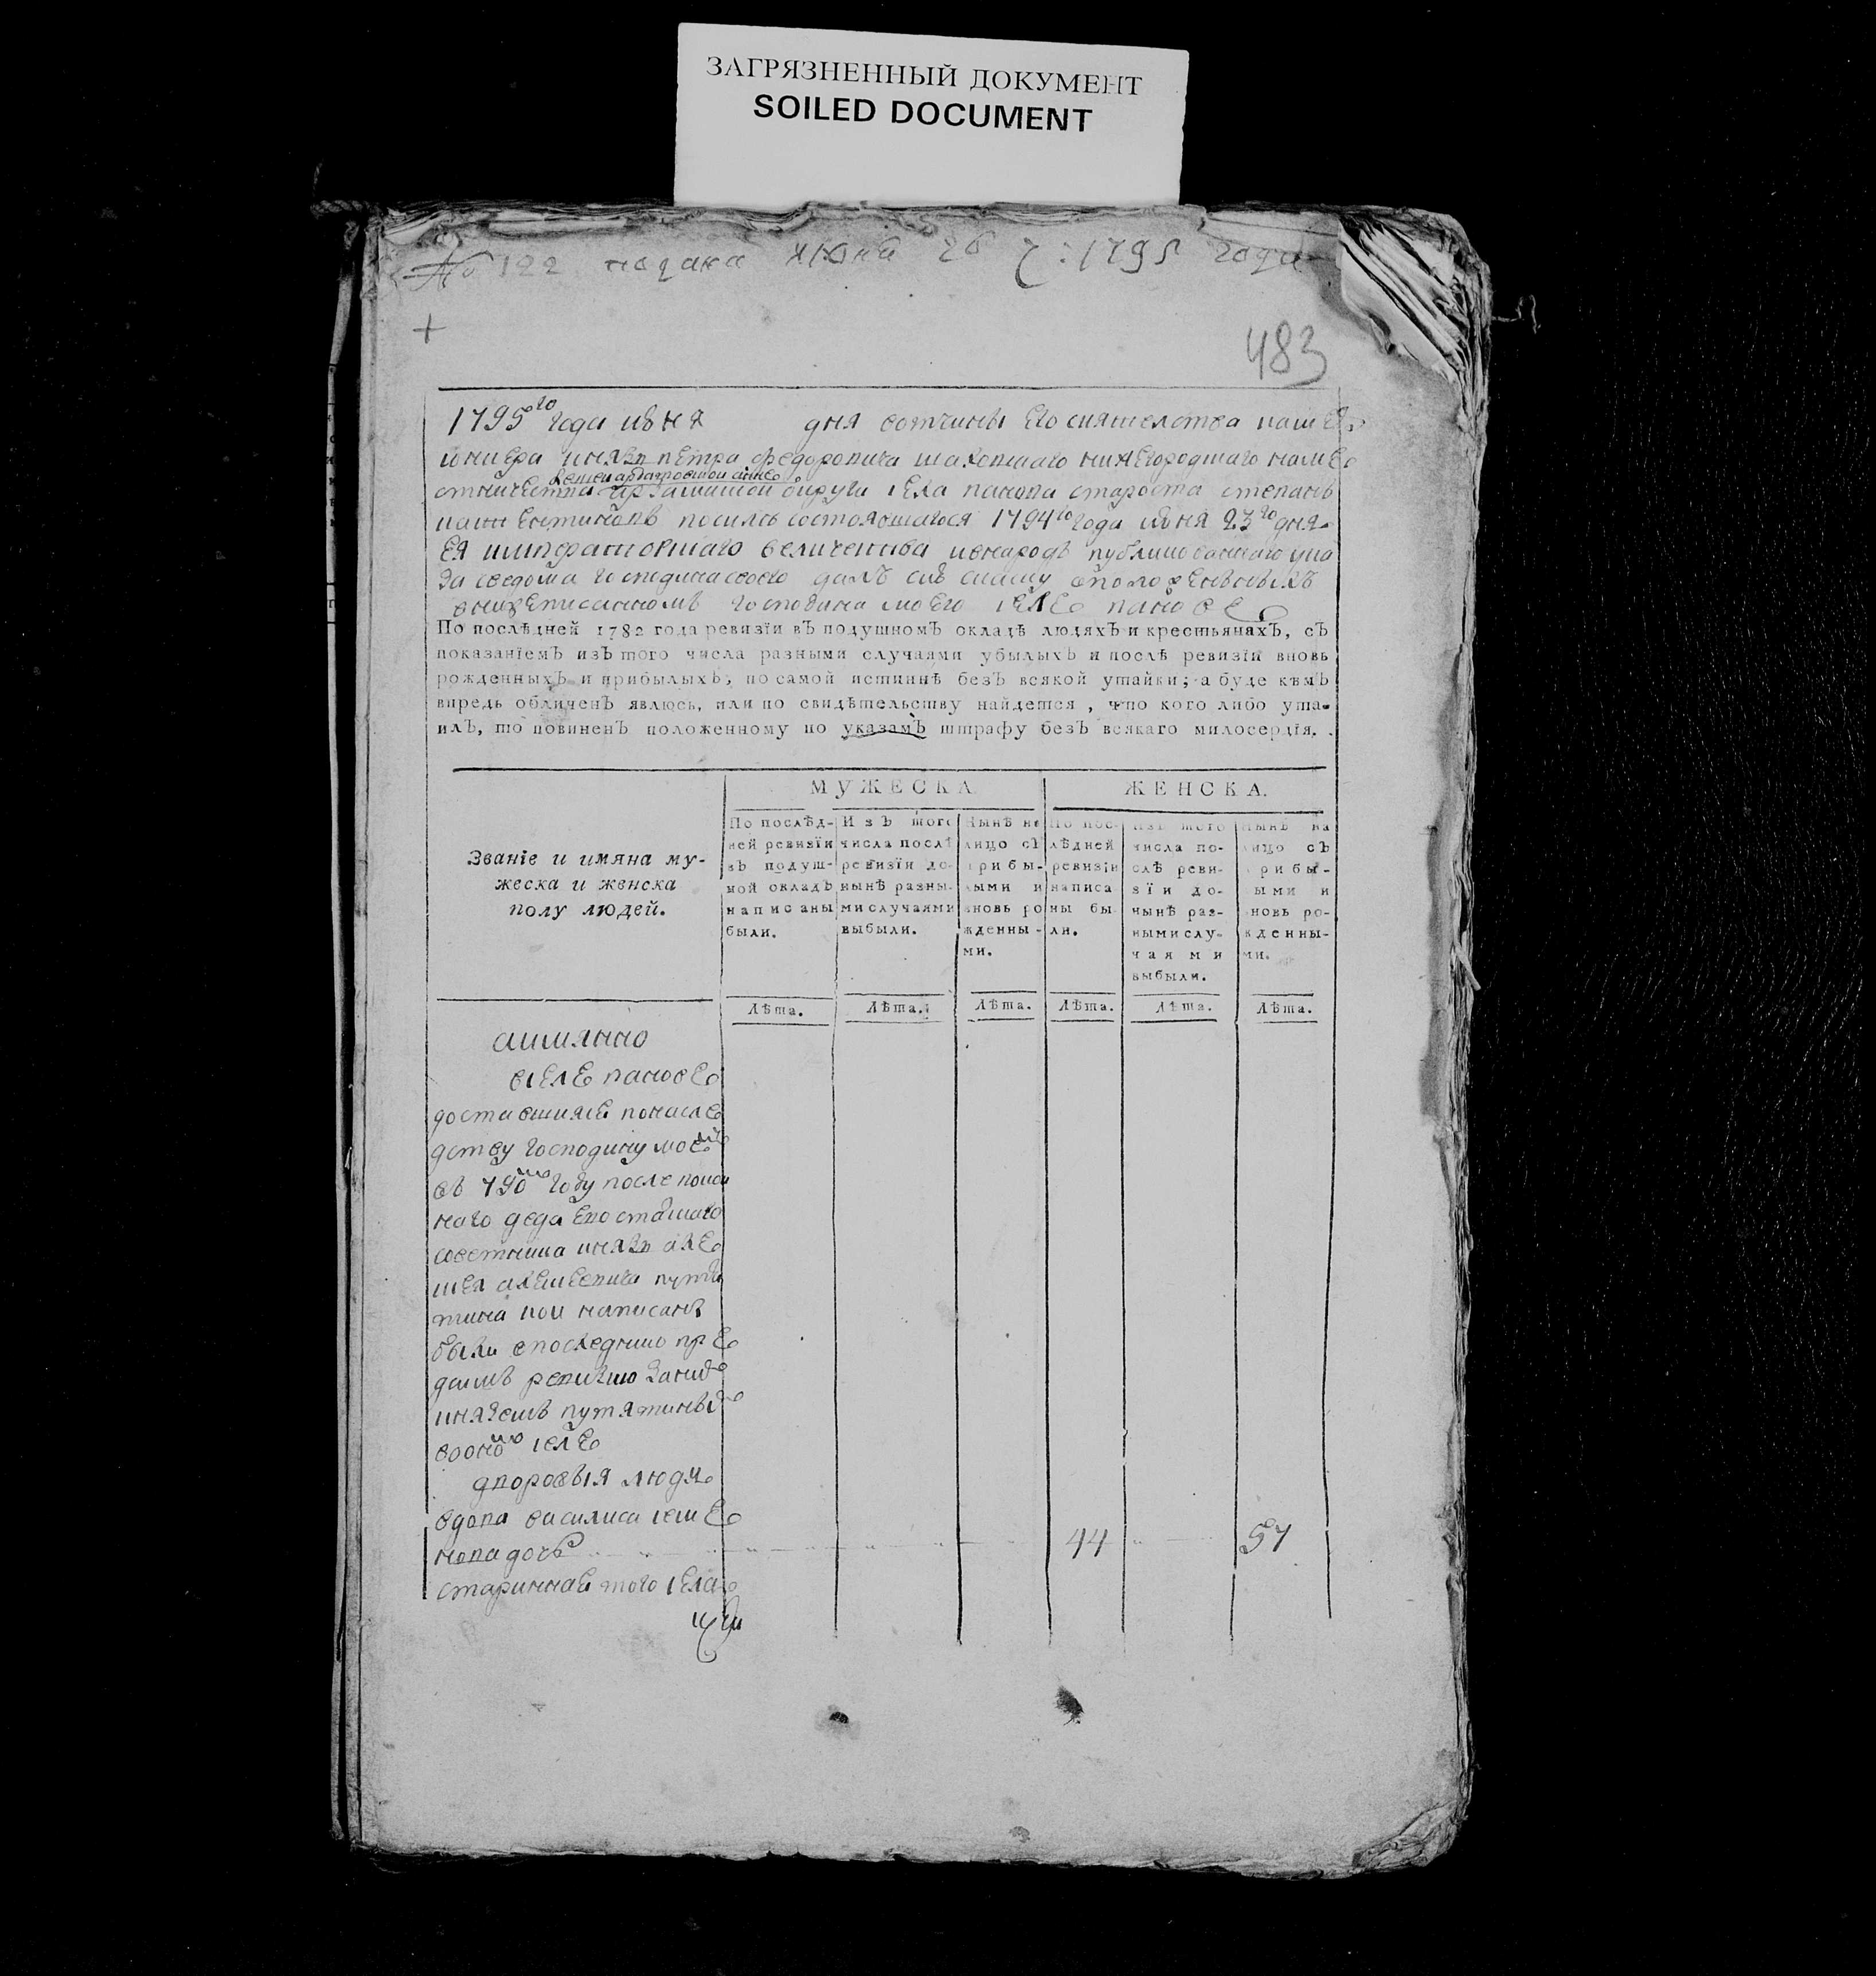 ЗАГРЯЗНЕННЫЙ ДОКУМЕНТ
SOILED DOCUMENT
№ 122 подана июня 26 ч: 1795 года
483
1795го года июня дня вотчины его сиятелства
князя петра федоровича нижегородскаго намѣ
округи села панова староста степанъ
по силѣ состоявшагося 1794го года июня 23го дня
ея императорскаго величества в народъ публикованнаго ука
за с ведома господина своего далъ сию скаску о положенныхъ
в нижеписанномъ господина моего селе панове
По послѣдней 1782 года ревизїи въ подушномъ окладѣ людяхъ и крестьянахъ, съ
показанїемъ изъ того числа разными случаями убылыхъ и послѣ ревизїи вновь
рожденныхъ и прибылыхъ, по самой истиннѣ безъ всякой утайки; а буде кѣмъ
впредь обличенъ явлюсь, или по свидѣтельству найдется, что кого либо ута-
илъ, то повиненъ положенному по указамъ штрафу безъ всякаго милосердїя.
МУЖЕСКА
ЖЕНСКА.
Званіе и имяна му-
жеска и женска
полу людей.
По послѣд-
ней ревизїи
въ подуш-
ной окладъ
написаны
были.
Изъ того
числа послѣ
ревизїи до-
нынѣ разны-
ми случаями
выбыли.
Нынѣ на
лицо съ
прибы-
лыми и
вновь ро
жденны-
ми.
По пос-
лѣдней
ревизїи
написа
ны бы
ли.
Изъ того
числа по-
слѣ реви-
зїи до-
нынѣ раз-
ными слу-
чаями
выбыли.
Нынѣ на
лицо съ
прибы-
лыми и
вновь ро-
жденны-
ми.
Лѣта.
Лѣта.
Лѣта.
Лѣта.
Лѣта.
Лѣта.
а имянно
в селе панове
доставшияся по насле
дству господину моему
въ 790мъ году после покои
наго деда ево статскаго
советника князя але
ксея алексеевича путя
тина кои написаны
были в последнюю пре
дъ симъ ревизию за нимъ
княземъ путятинымъ
в ономъ селе
дворовыя люди
вдова василиса семе
нова дочь 44 57
старинная того села